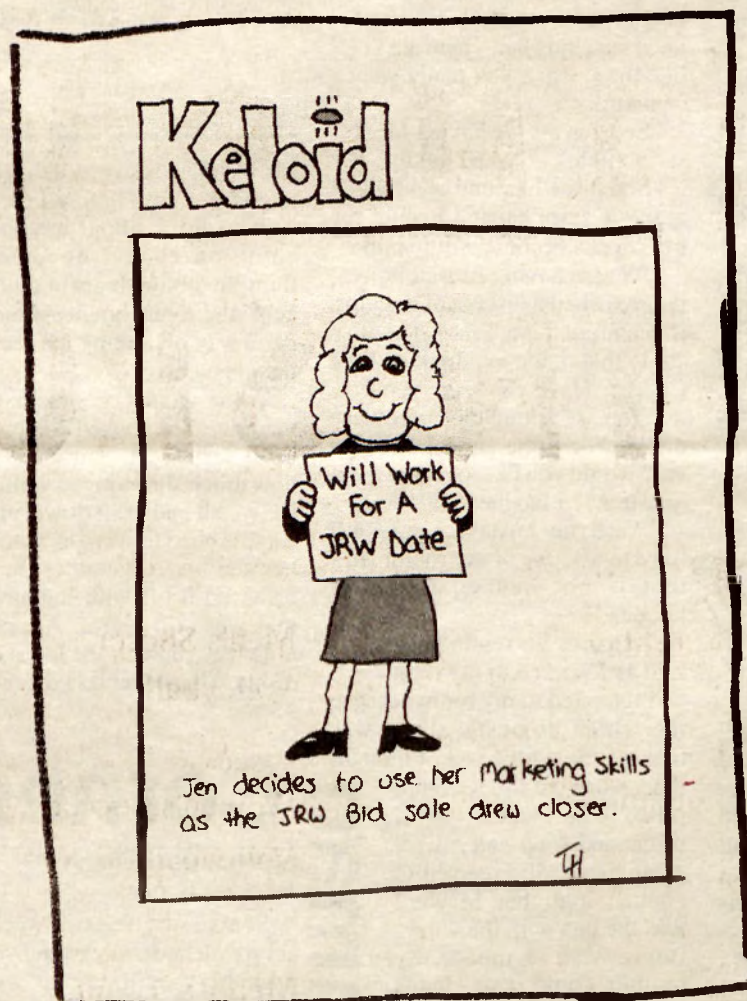 Keloid
Will Work
For A
JRW Date
Jen decides to use her Marketing Skills
as the JRW Bid sale drew closer.
TH